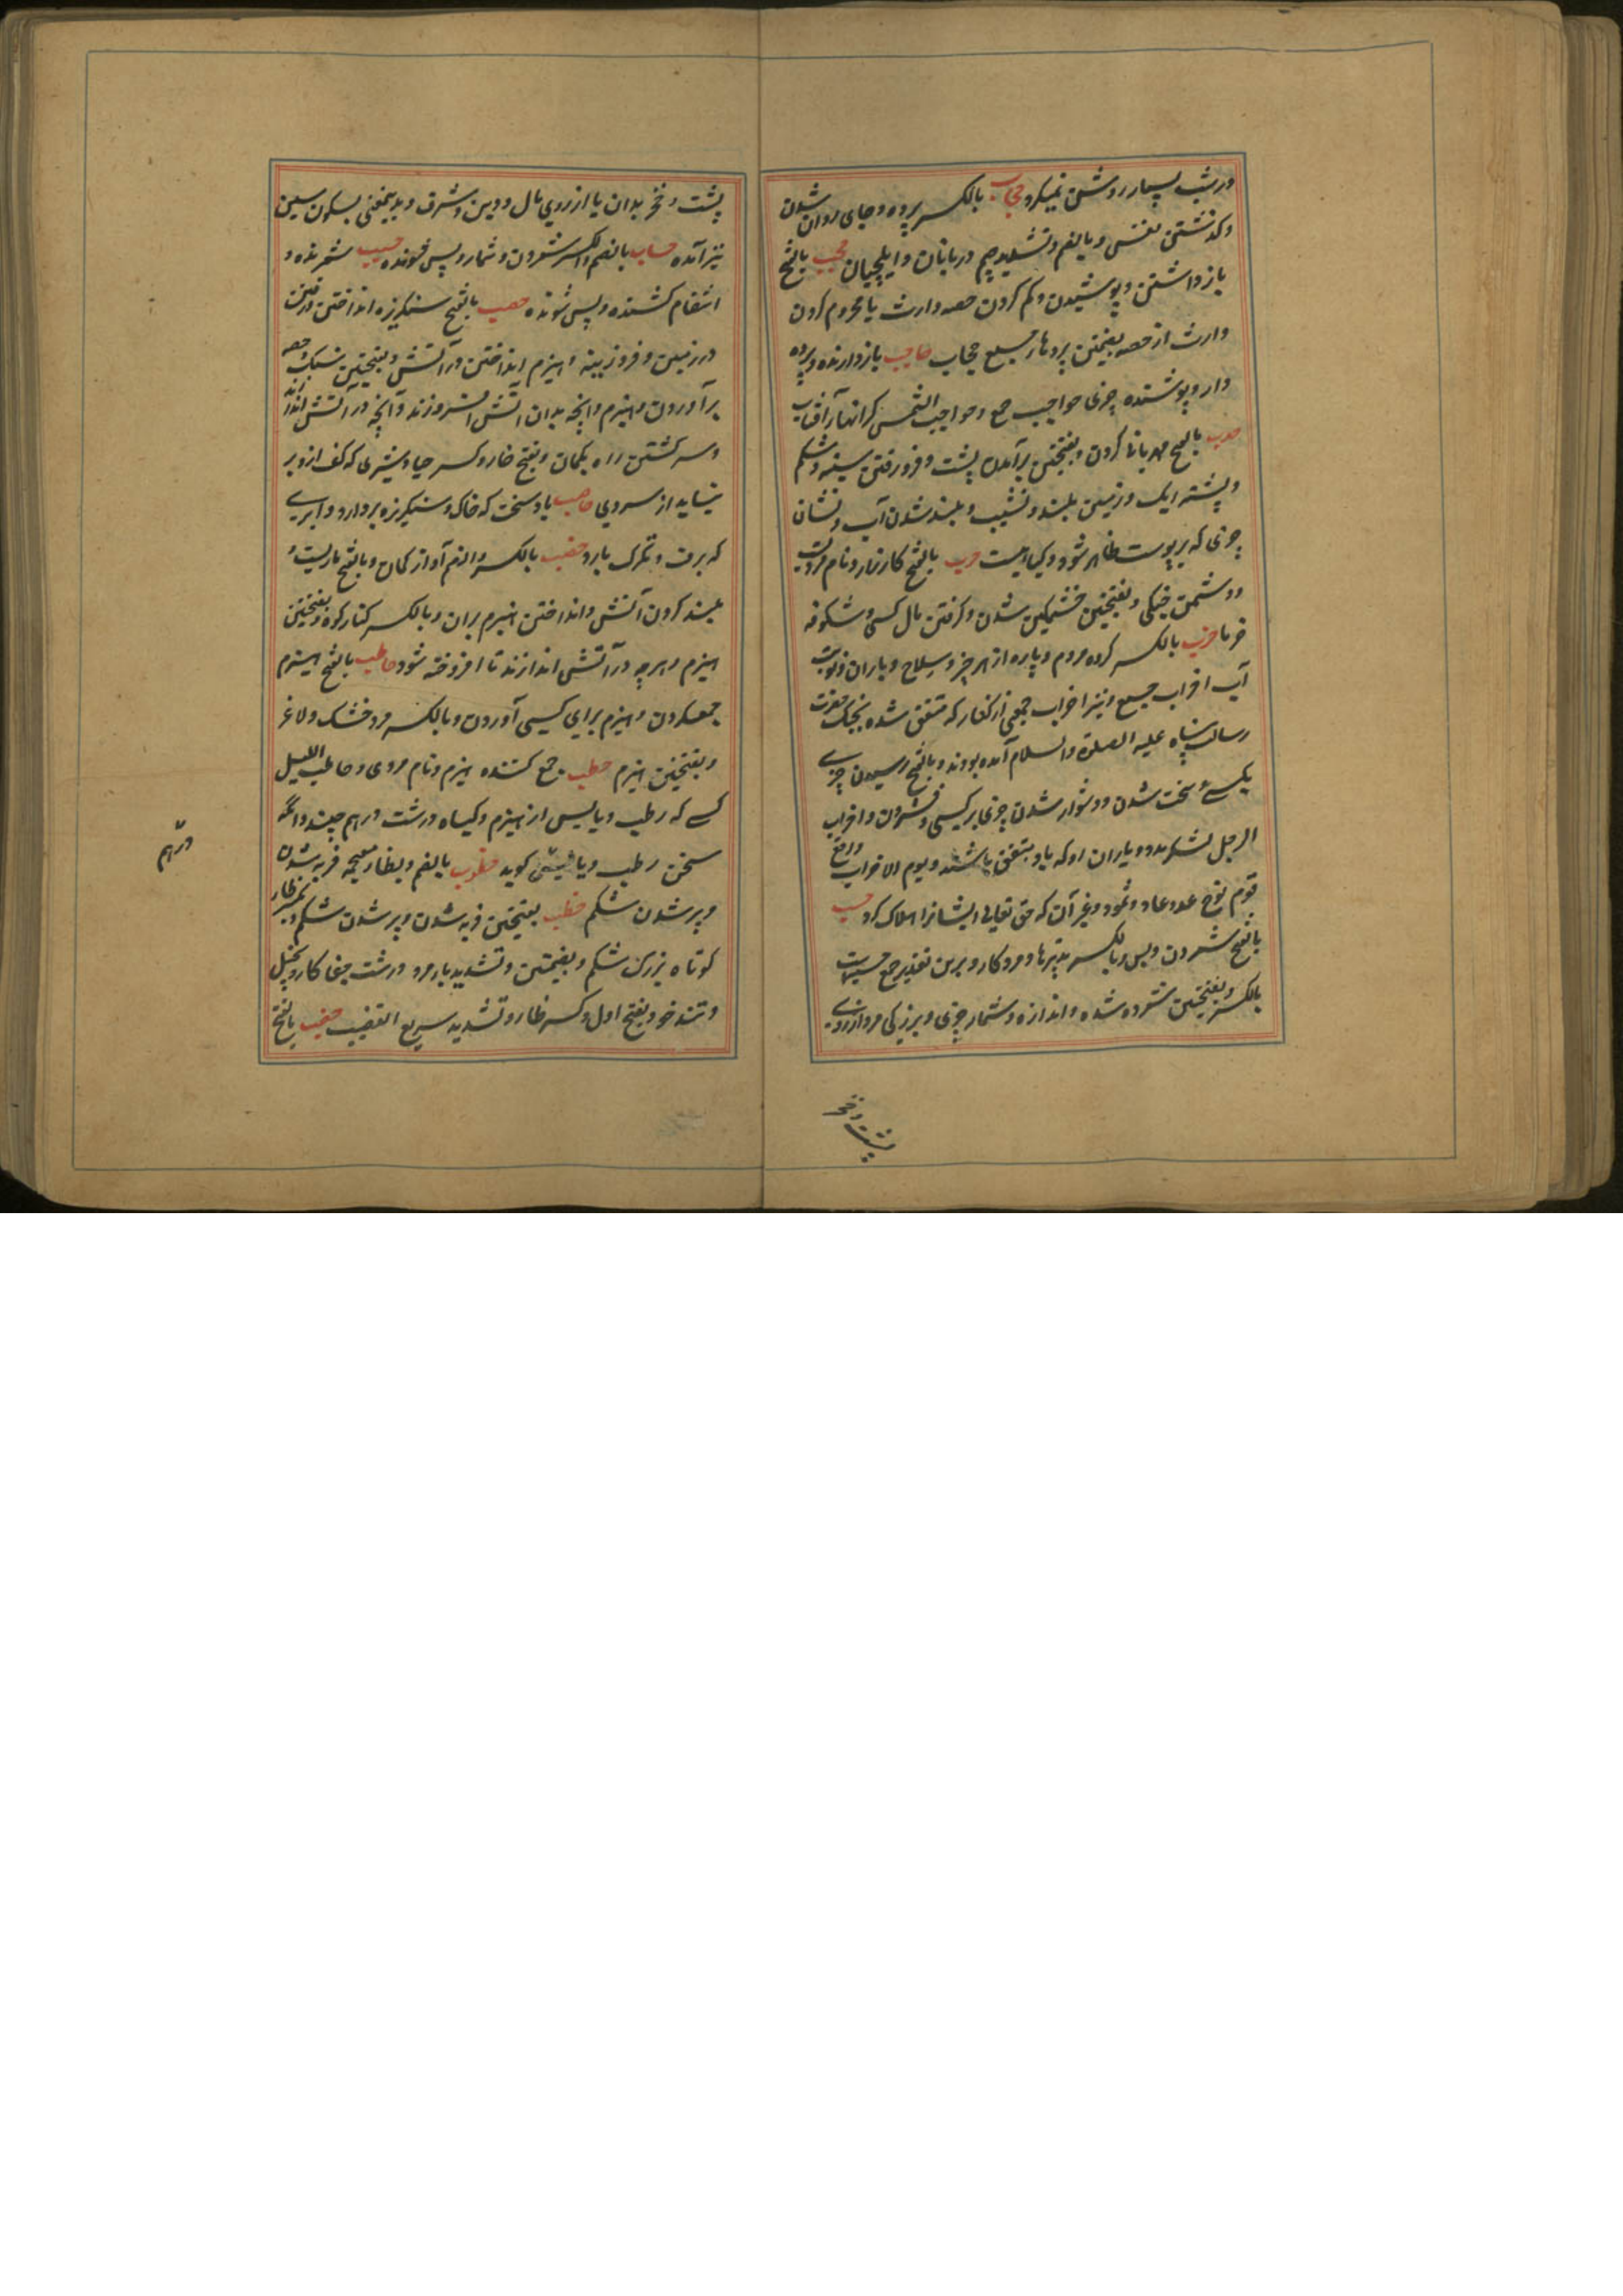 در شب بسیار روشن نمیکرد حجاب بالکسر پرده و جای روان شدن
و گذشتن نفس و بالضم و تشدید جیم دربانان و ایلچیان حجب بالفتح
باز داشتن و پوشیدن و کم کردن حصه وارث یا محروم کردن
وارث از حصه بضمتین پردها جمع حجاب حاجب بازدارنده و پرده
دار و پوشنده چیزی حواجب جمع و حواجب الشمس کرانهاء آفتاب
حدب بالفتح مهربانی کردن و بفتحتین برآمدن پشت و فرو رفتن سینه و شکم
و پشته ریک و زمین بلند و نشیب و بلند شدن آب و نشان
چیزی که بر پوست ظاهر شود و گیاهیست حرب بالفتح کارزار و نام مردیست
و دشمن جنگی و بفتحتین خشمگین شدن و گرفتن مال کسی و شکوفه
خرما حزب بالکسر گروه مردم و پاره از هر چیز و سلاح و یاران و نوبت
آب احزاب جمع و نیز احزاب جمعی از کفار که متفق شده بجنگ حضرت
رسالت پناه علیه الصلوة والسلام آمده بودند و بالفتح رسیدن چیزی
بکسی و سخت شدن و دشوار شدن چیزی بر کسی و فشردن و احزاب
الرجل لشکر مرد و یاران او که باو متفق باشند و یوم الاحزاب واقع
قوم نوح و عاد و ثمود و غیر آن که حق تعالی ایشانرا هلاک کرد حسب
بالفتح شمردن و بس و بالکسر تدبیرها و مرد کار و برین تقدیر جمع حسبه است
بالکسر و بفتحتین شمرده شده و اندازه و شمار چیزی و بزرگی مرد از روی
پشت و فخر
پشت و فخر بدان یا از روی مال و دین و شرف و بدینمعنی بسکون سین
نیز آمده حساب بالضم والکسر شمردن و شمار و بس شونده حسیب شمرنده و
انتقام کشنده و بس شونده حصب بالفتح سنگریزه انداختن و رفتن
در زمین و فروزینه و هیزم انداختن در آتش و بفتحتین سنگ و حصبه
برآوردن و هیزم و آنچه بدان آتش افروزند و آنچه در آتش اندازند
و سرگشتن زه کمان و بفتح حا و کسر صاد شیری که کف ازو بر
نیاید از سردی حاصب باد سخت که خاک و سنگریزه بردارد و ابری
که برف و تگرگ بارد حضب بالکسر والضم آواز کمان و بالفتح ماریست و
بلند کردن آتش و انداختن هیزم بران و بالکسر کنار کوه و بفتحتین
هیزم و هرچه در آتش اندازند تا افروخته شود حاطب بالفتح هیزم
جمعکردن و هیزم برای کسی آوردن و بالکسر مرد خشک و لاغر
و بفتحتین هیزم حطب جمع کننده هیزم و نام مردی و حاطب اللیل
کسی که رطب و یابس از هیزم و گیاه درشت درهم چیند و آنکه
سخن رطب و یابس گوید حظوب بالضم و بظاء معجمه فربه شدن
و پر شدن شکم حظب بفتحتین فربه شدن و پر شدن شکم و بکسر ظا
کوتاه بزرگ شکم و بضمتین و تشدید با مرد درشت جفا کار و بخیل
و تند خو و بفتح اول و کسر ظا و تشدید سریع الغضب حقب بالفتح
درهم